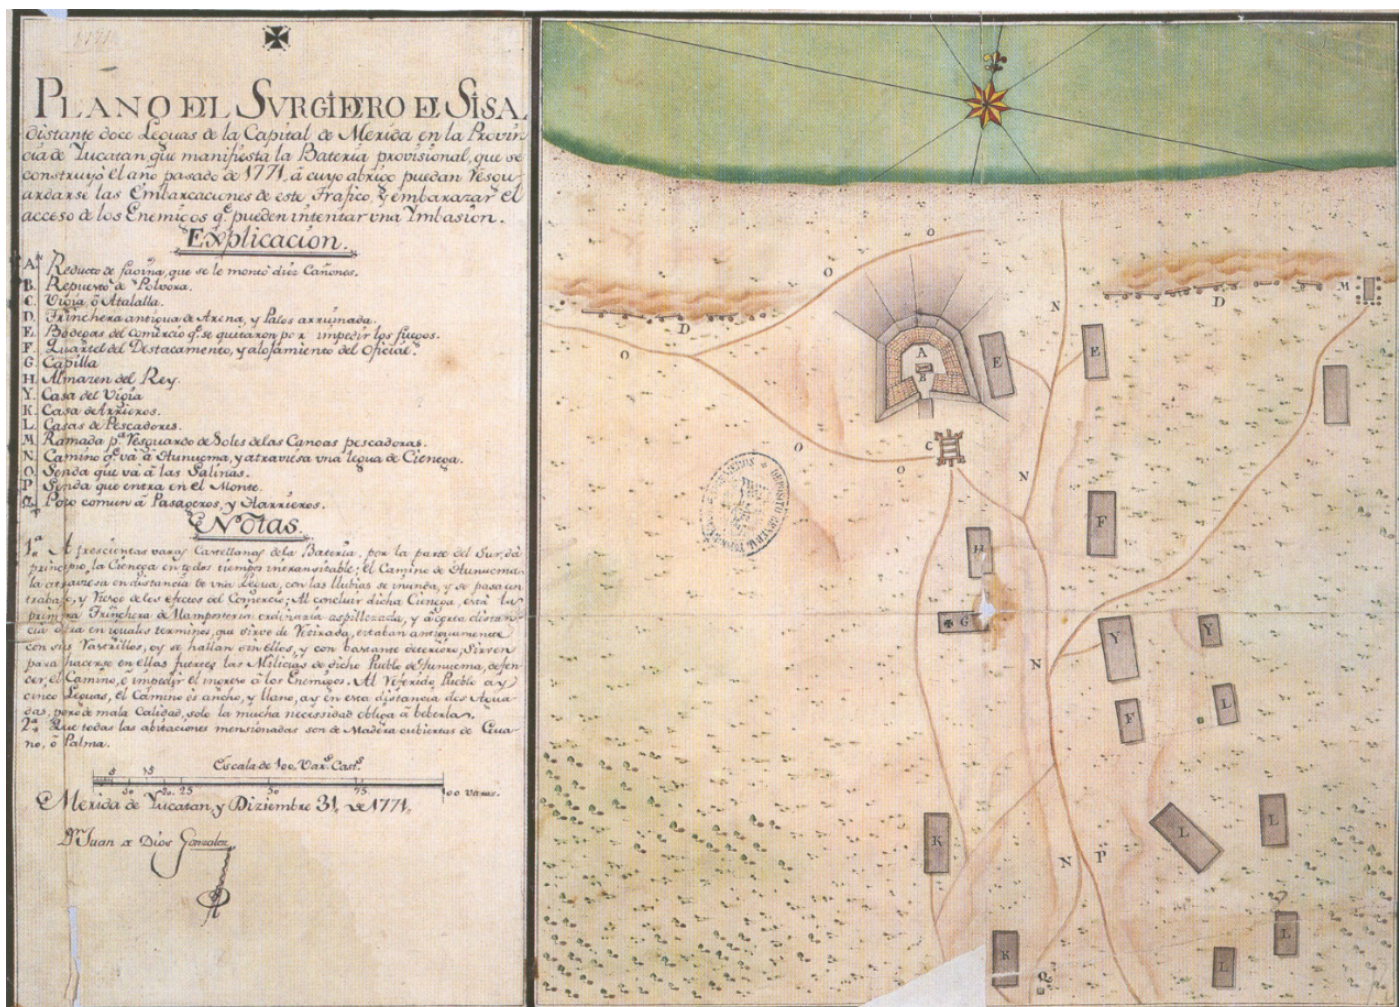 PLANO DEL SVRGIDERO DE SISAL
distante doce Leguas de la Capital de Merida en la Provin
cia de Yucatan, que manifiesta la Bateria provisional, que se
construyò el año pasado de 1771, à cuyo abrigo puedan Resgu-
ardarse las Embarcaciones de este Trafico, y embarazar el
acceso de los Enemigos q.e pueden intentar vna Ymbasion.
Explicacion.
A Reducto de faginà, que se le montò diez Cañones.
B. Repuesto de Polvora.
C. Vigia, ò Atalalla.
D Trinchera antigua de Arena, y Palos arruinada.
E. Bodegas del comercio q.e se quitaron por impedir los fuegos.
F Quartel del Destacamento, y alojamiento del Oficial.
G Capilla
H. Almazen del Rey.
Y. Casa del Vigia
K. Casa de Arrieros.
L. Casas de Pescadores.
M. Ramada p.a Resguardo de Soles de las Canoas pescadoras.
N. Camino q.e và à Hunucma, y atraviesa vna legua de Cienega.
O. Senda que và à las Salinas.
P Senda que entra en el Monte.
Q. Pozo comun à Pasageros, y Harrieros.
Notas.
1.a A trescientas varas Castellanas de la Bateria, por la parte del Sur, dà
principio, la Cienega en todos tiempos intransitable; el Camino de Hunucma
la atraviesa en distancia de vna Legua, con las llubias se inunda, y se pasa con
trabajo, y Riesgo de los efectos del Comercio; Al concluir dicha Cienega, està la
primera Trinchera de Mamposteria ordinaria aspillerada, y à corta distan-
cia otra en iguales terminos, que sirve de Retirada, estaban antiguamente
con sus Rastrillos, oy se hallan sin ellos, y con bastante deterioro, Sirven
para hacerse en ellas fuertes las Milicias de dicho Pueblo de Hunucma, defen-
der, el Camino, è impedir el ingreso à los Enemigos. Al Referido Pueblo ay
cinco Leguas, el Camino es ancho, y llano, ay en esta distancia dos Agua-
das, pero de mala Calidad, solo la mucha necessidad obliga à beberlas.
2.a Que todas las abitaciones mensionadas son de Madera cubiertas de Gua-
no, ò Palma.
Escala de 100. Var.s Cast.s
5 15
10 20. 25 50 75. 100 varas.
Merida de Yucatan, y Diziembre 31. de 1771.
D.n Juan de Dios Gonzalez
O
O
N
D
D
M
A
B
E
E
O
O
C
O
N
F
H
G
Y
Y
N
F
L
K
L
L
N
P
K
Q
L
L
DEPOSITO GENERAL